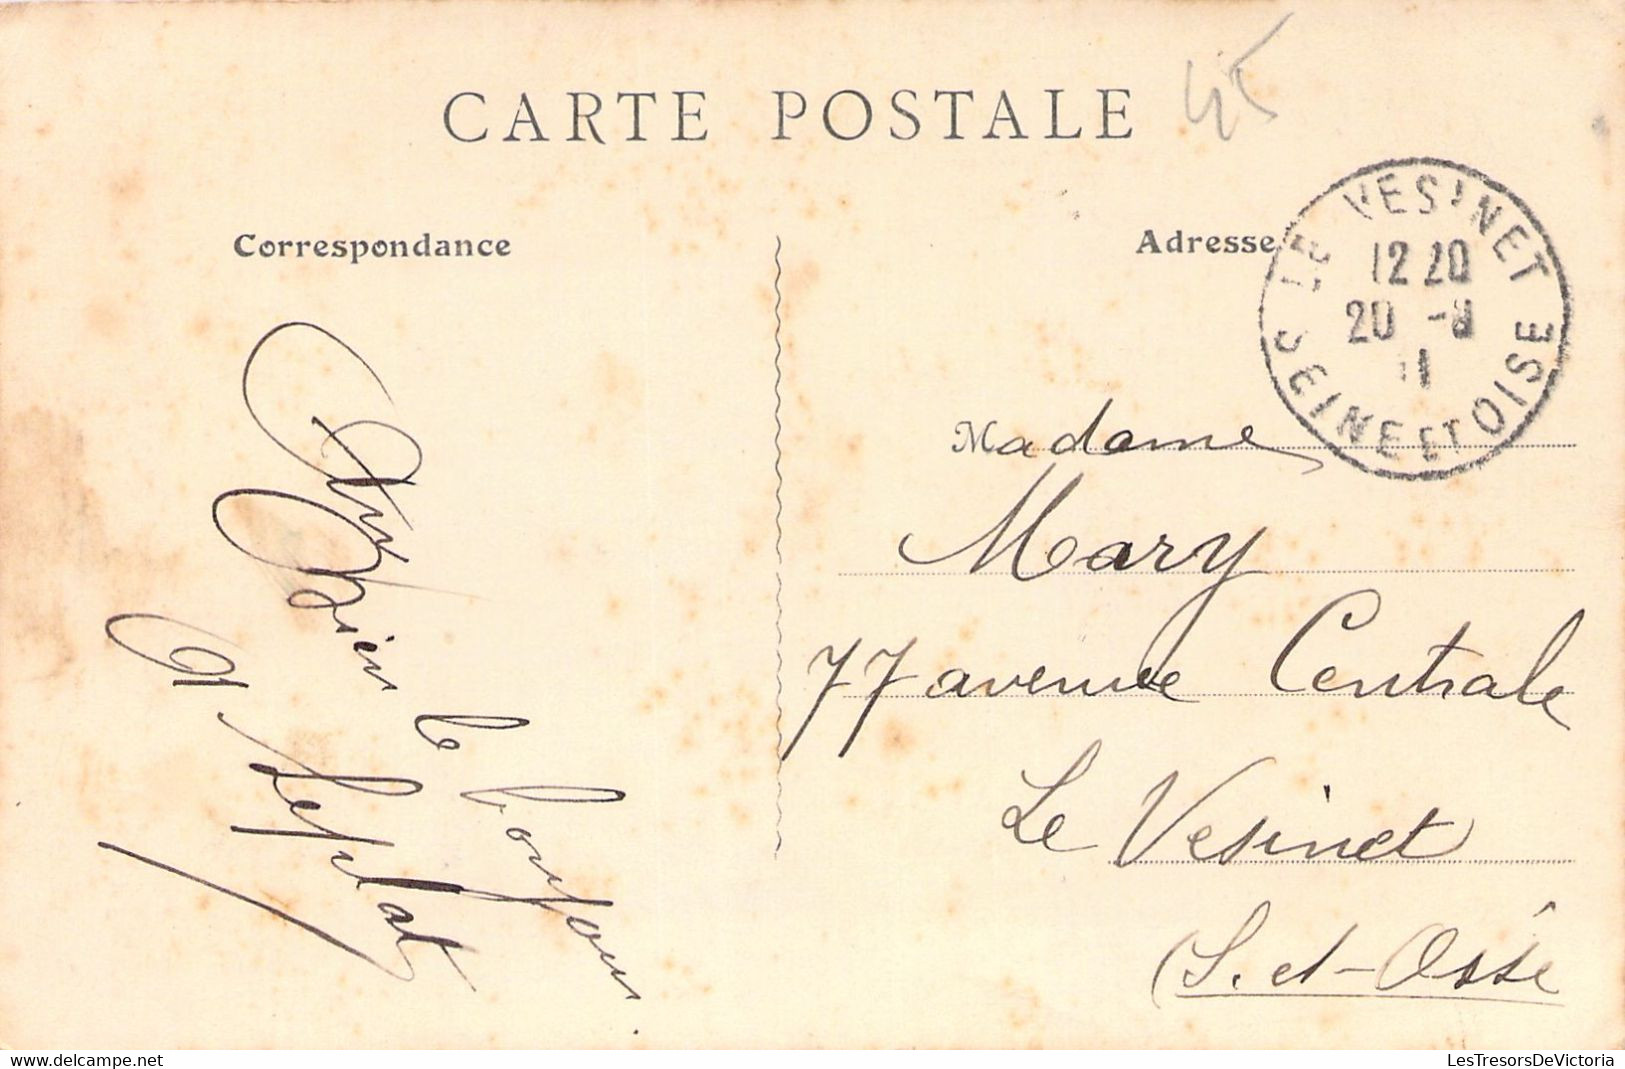 CARTE POSTALE
45
Correspondance
Adresse
LE VESINET
12 20
20 -8
11
SEINE ET OISE
Bien le bonjour
Leplat
Madame
Mary
77 avenue Centrale
Le Vesinet
(S. et-Oise
LesTresorsDeVictoria